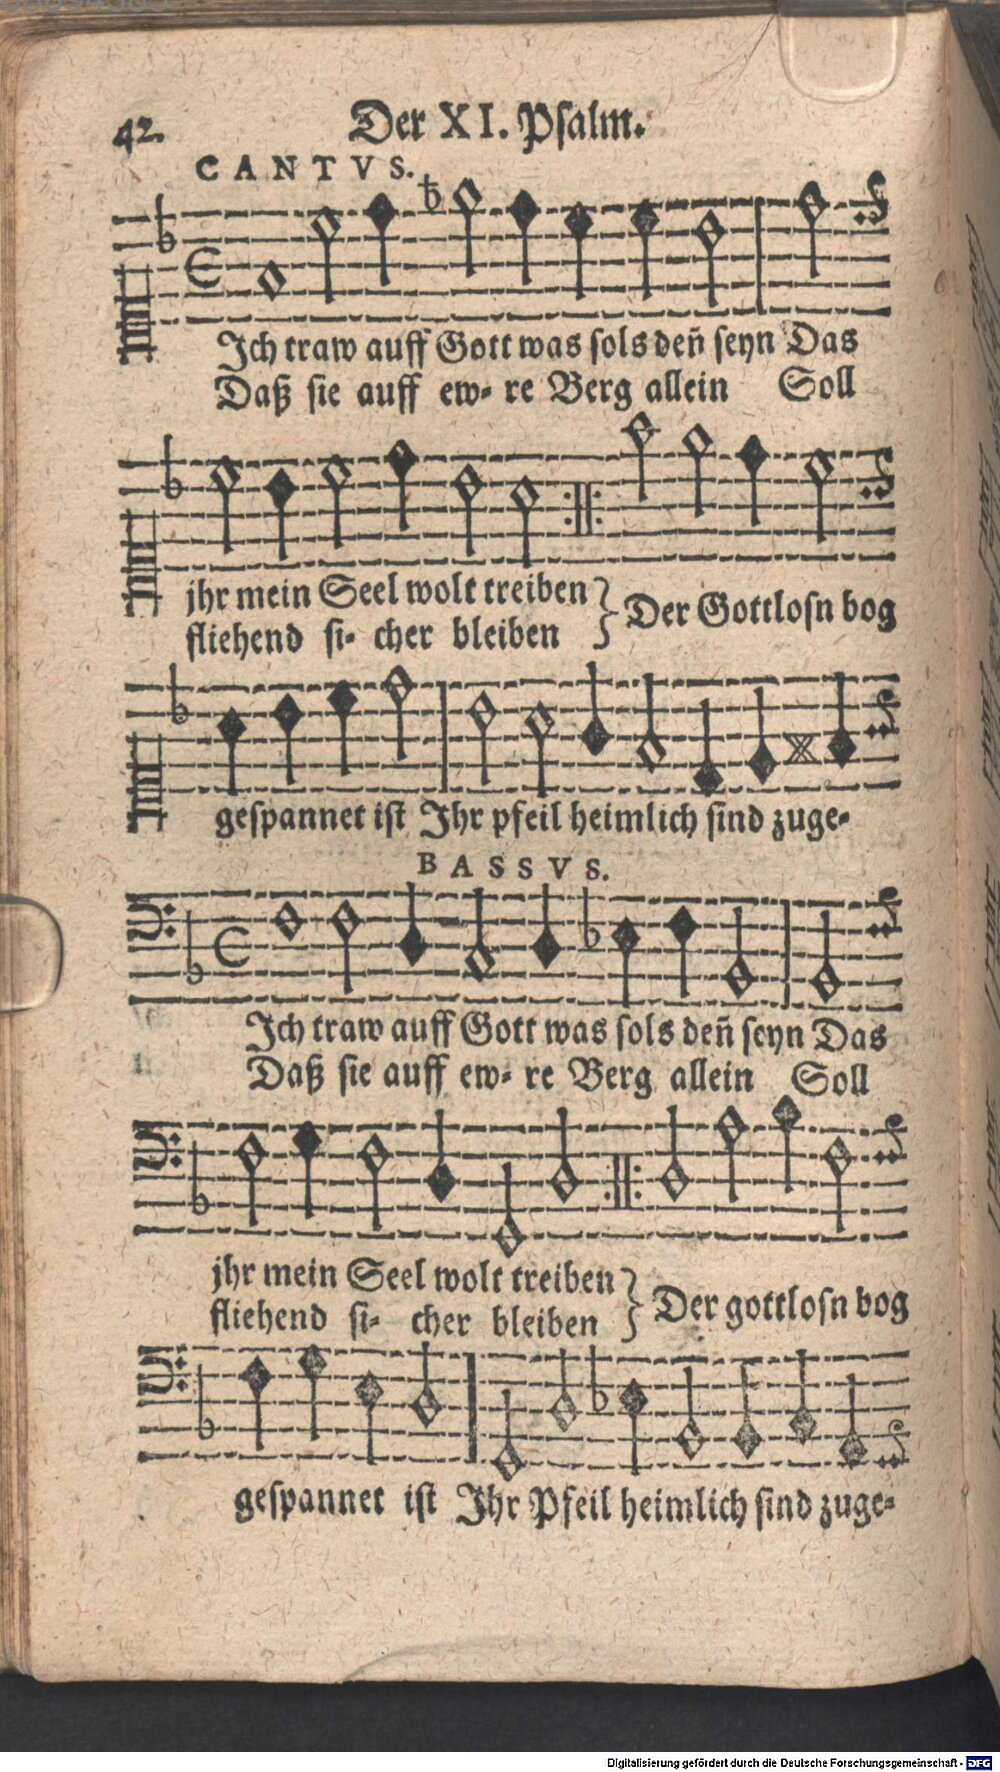 42.
Der XI. Psalm.
CANTVS.
Ich traw auff Gott was sols deñ seyn Das
Daß sie auff ew- re Berg allein Soll
jhr mein Seel wolt treiben
fliehend si- cher bleiben
Der Gottlosn bog
gespannet ist Ihr pfeil heimlich sind zuge-
BASSVS.
Ich traw auff Gott was sols deñ seyn Das
Daß sie auff ew- re Berg allein Soll
jhr mein Seel wolt treiben
fliehend si- cher bleiben
Der gottlosn bog
gespannet ist Ihr Pfeil heimlich sind zuge-
Digitalisierung gefördert durch die Deutsche Forschungsgemeinschaft - DFG